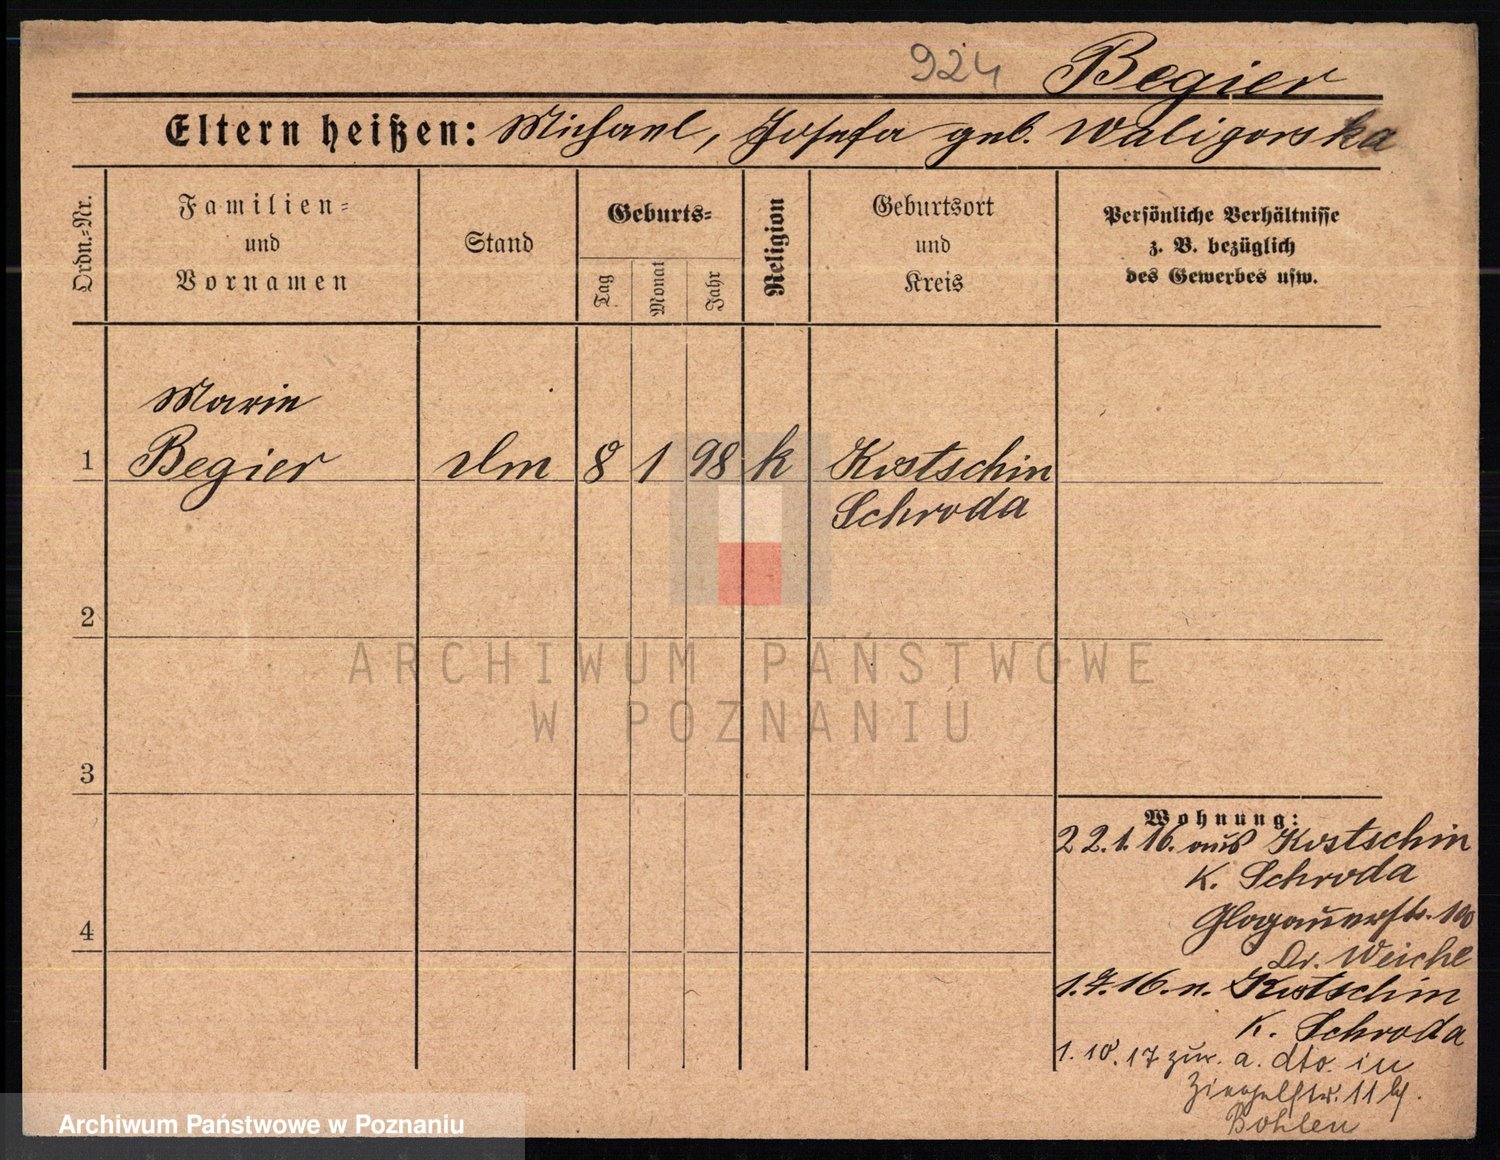 924 Begier
Eltern heißen: Michael, Josefa geb. Waligorska
Ordn.-Nr.
Familien-
und
Vornamen
Stand
Geburts-
Tag
Monat
Jahr
Religion
Geburtsort
und
Kreis
Persönliche Verhältnisse
z. B. bezüglich
des Gewerbes usw.
Marie
1 Begier 8 1 98 k Kostschin
Schroda
2
3
4
Wohnung:
22.1.16. aus Kostschin
K. Schroda
Glogauerstr. 100
Dr. Weichl
1.7.16. n. Kostschin
K. Schroda
1.10.17 zur. a. dto. in
Ziegelstr. 11 b/.
Bohlen
ARCHIWUM PAŃSTWOWE
W POZNANIU
Archiwum Państwowe w Poznaniu